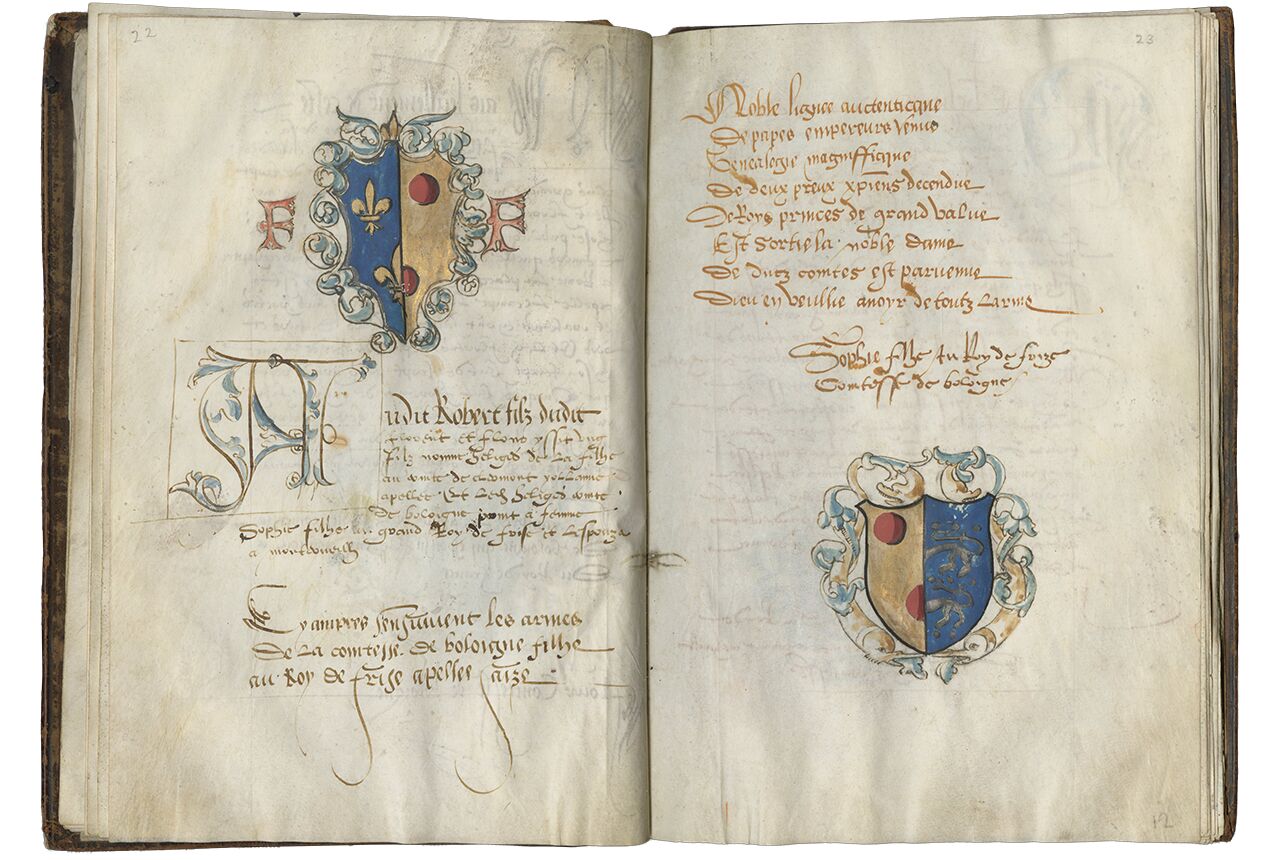 22
F F
Audit Robert filz dudit
florent et flour yssit ung
filz nomme Seliges de la filhe
au comte de clermont
apellee Et Led Seliges comte
de boloigne print a femme
Sophie filhe du grand Roy de frise et Lespouza
a
Cy ampres sensuivent les armes
de La comtesse de boloigne filhe
au Roy de frise apelles saize
23
Noble lignee auctenticque
De papes empereurs venus
Genealogie magnifficque
De deux preux xpiens decendue
De Roys princes de grand value
Est sortie la noble dame
De ducz comtes est parvenue
Dieu en veulhe avoyr de toutz Larme
Sophie filhe du Roy de frize
Comtesse de boloigne
12